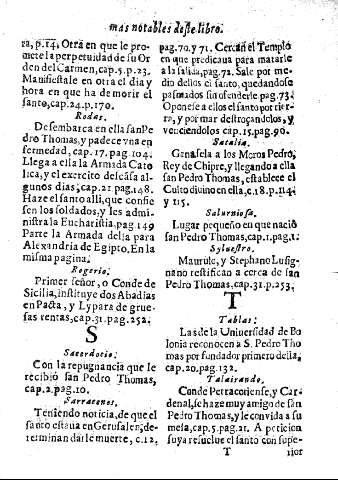 mas notables deste libro.
ra, p.14. Otra en que le pro-
mete la perpetuidad de su Or
den del Carmen, cap.5.p.23.
Manifiestale en otra el dia y
hora en que ha de morir el
santo, cap.24.p.170.
Rodas.
Desembarca en ella san Pe
dro Thomas, y padece vna en
fermedad, cap.17.pag.104.
Llega a ella la Armada Cato
lica, y el exercito descãsa al-
gunos dias, cap.21 pag.148.
Haze el santo alli, que confies
sen los soldados, y les admi-
nistra la Eucharistia, pag 149
Parte la Armada della para
Alexandria de Egipto, En la
misma pagina.
Rogerio.
Primer señor, o Conde de
Sicilia, instituye dos Abadias
en Pacta, y Lypara de grue-
sas rentas, cap.31.pag.252.
S
Sacerdocio.
Con la repugnancia que le
recibiò san Pedro Thomas,
cap.2.pag.10.
Sarracenos.
Teniendo noticia, de que el
santo estaua en Gerusalen; de-
terminan darle muerte, c.12.
pag.70. y 71. Cercãn el Templo
en que predicaua para matarle
a la salida, pag.72. Sale por me-
dio dellos el santo, quedandose
pasmados sin ofenderle pag.73.
Oponese a ellos el santo por tier-
ra, y por mar destroçandolos, y
venciendolos cap.15.pag.90.
Satalia.
Ganasela a los Moros Pedro,
Rey de Chipre, y llegando a ella
san Pedro Thomas, establece el
Culto diuino en ella, c.18.p.114.
y 115.
Salurniosa.
Lugar pequeño en que naciò
san Pedro Thomas, cap.1.pag.1.
Sylvestro.
Maurulc, y Stephano Lusig-
nano testifican a cerca de san
Pedro Thomas, cap.31.p.253.
T
Tablas.
Las de la Vniuersidad de Bo
lonia reconocen a S. Pedro Tho
mas por fundador primero della,
cap.20.pag.132.
Talairando.
Conde Petracoriense, y Car-
denal, se haze muy amigo de san
Pedro Thomas, y le convida a su
mesa, cap.5.pag.21. A peticion
suya resuelue el santo con supe-
T
rior